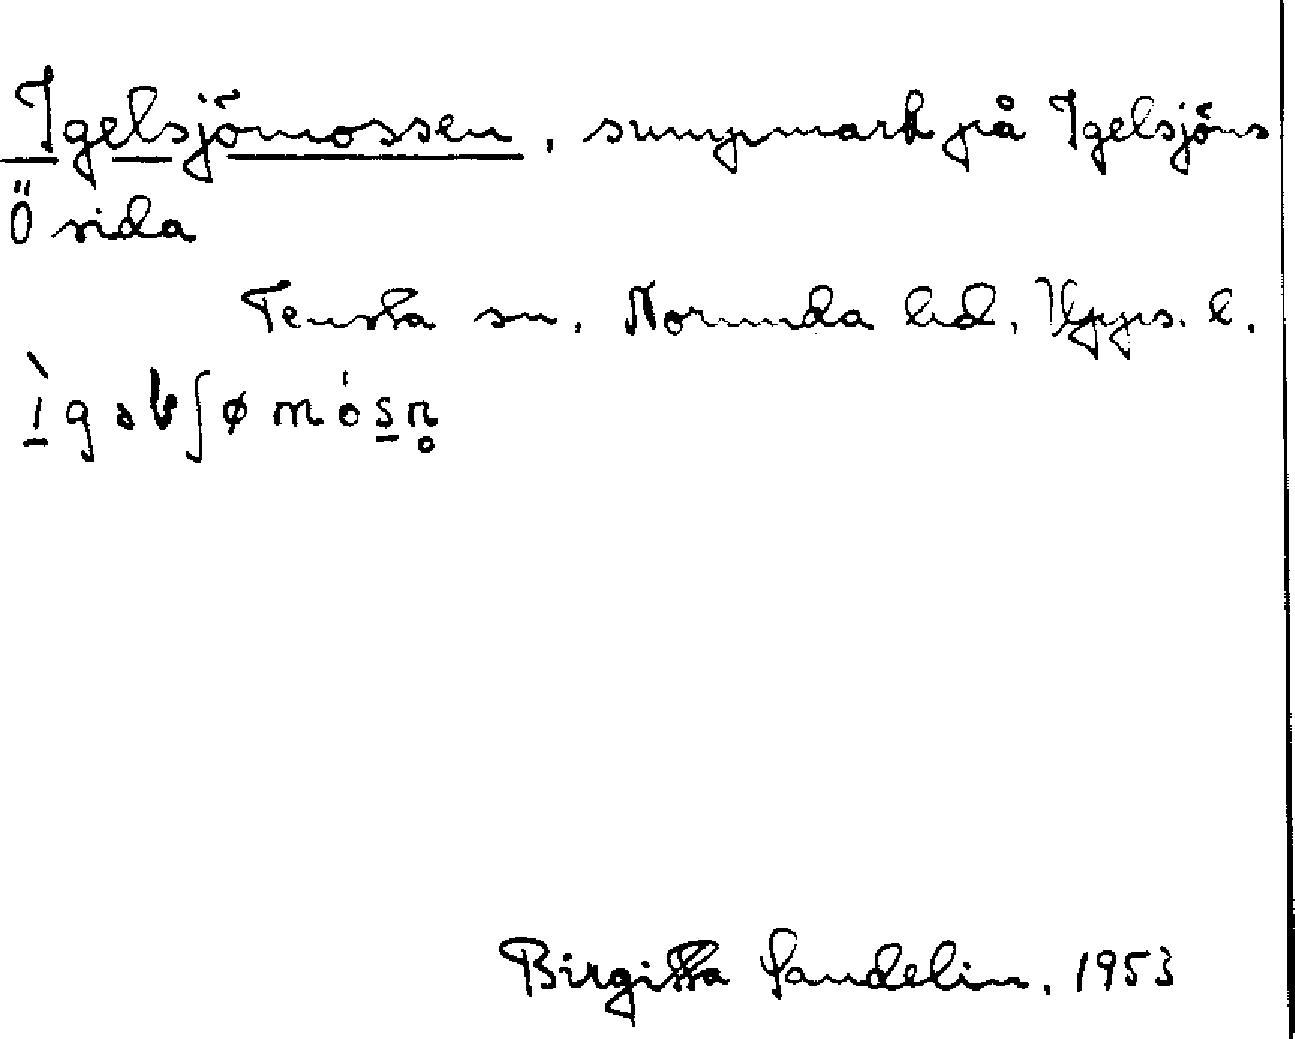 Igelsjömossen, sumpmark på Igelsjöns
Ö sida
Tensta sn. Norunda hd, Upps. l.
Birgitta Sandelin, 1953